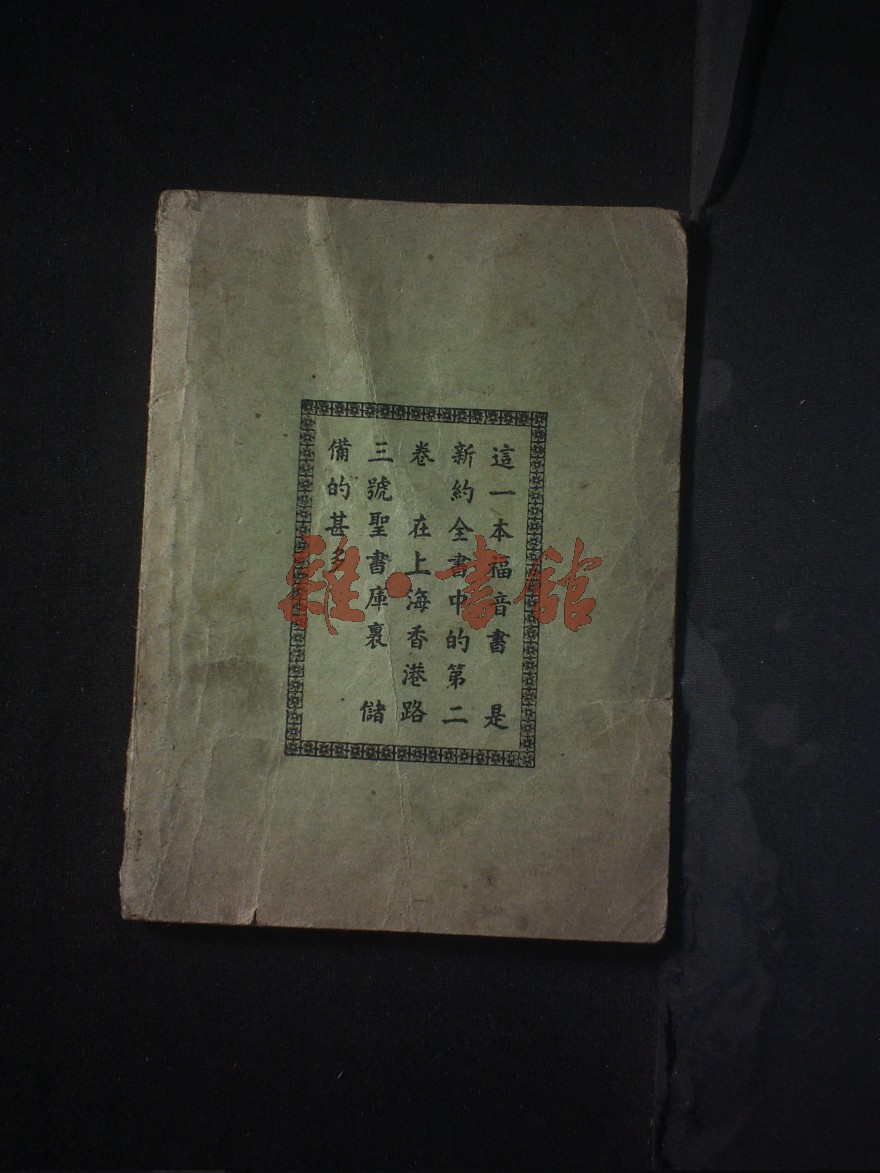 這一本福音書 是
新約全書中的第二
卷 在上海香港路
三號聖書庫裏 儲
備的甚多
雜·書館